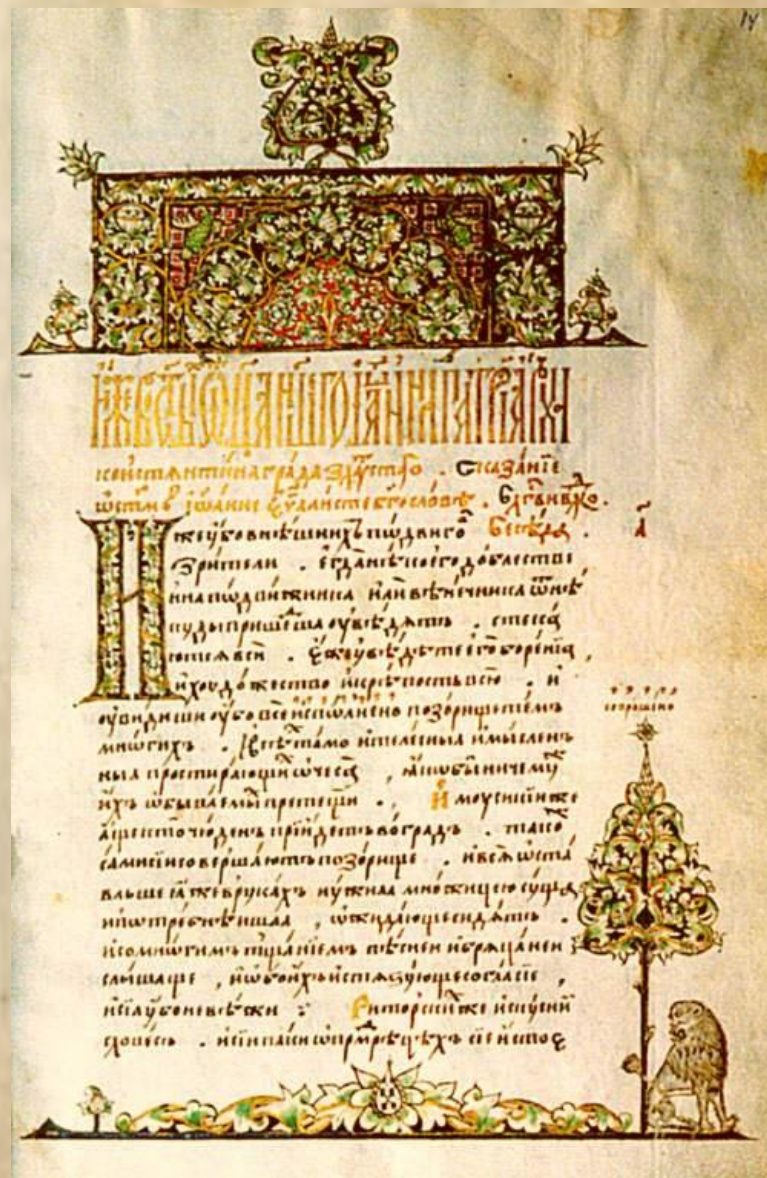 14
И҆же въ ст҃ы ѿца н҃шго іѡанна патрїархи
константїна града златоустаго . Сказанїе
іѡанне бг҃ословѣ .
Бесѣда . а҃
Иже ѹбо внѣшнихъ подвиго
зрители . егда нѣкоего доблестве
нна подвижника или вѣнечника ѿнѣ
куды пришеша оувѣдять . стека
ютсѧ вси . Еже ѹвѣдѣти его боренїа ,
и художество и крѣпость всю . и
оувидиши оубо все исполнено позорище тѣмъ
многихъ . И всѣ тамо и телесныа и мыслен
ныа простирающи ѡчеса , ꙗко бы ничему
ихъ ѡбываемы . И моусикїи же
аще кто чюденъ прїидетъ во градъ . тако
сами сїи совершаютъ позорище . и всѧ ѡста
вльше ꙗже в рукахъ нужнаа множицею сущаа
и потребнѣишаа , ѡжидающе сидѧтъ .
и со многимъ тщанїемъ пѣснеи и брѧцанеи
слышаще , и ѡбоихъ истѧзующе согласїе ,
Риторскїи же искуснїи
словесъ . и сїи паки